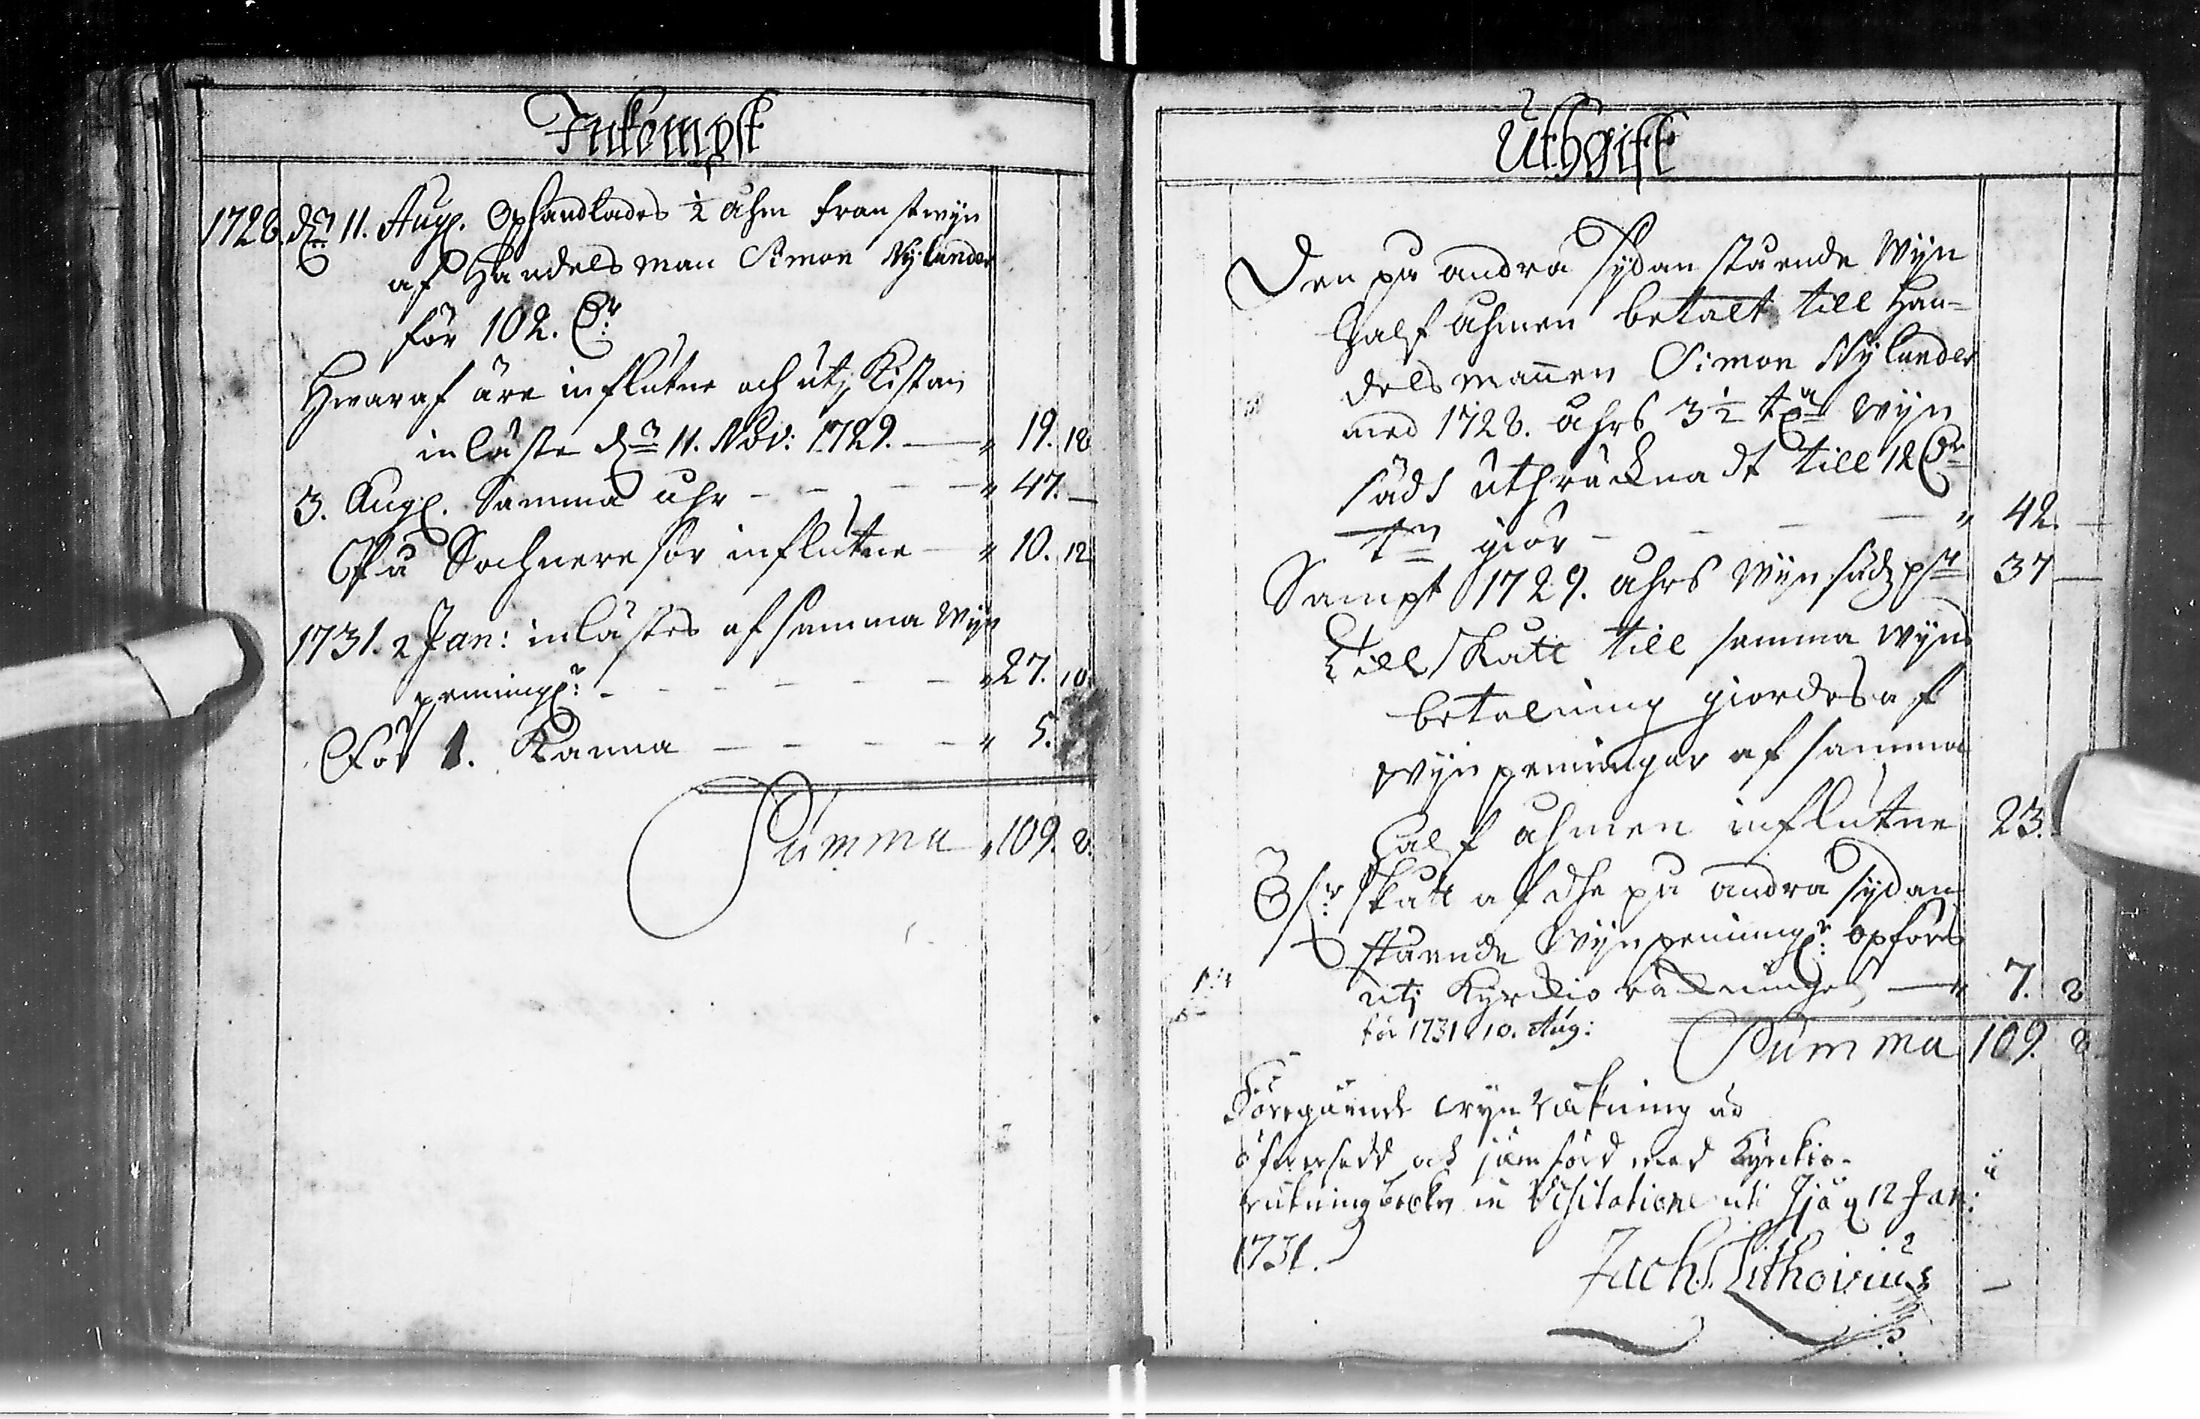 Inkompst
1728. d. 11. Aug. Ophandlades ½ åhm Franstwyn
af Handelsman Simon Nylander
för 102. Dr
Hwaraf äre influtne och utj Kistan
inlåste d. 11. Nov: 1729. — " 19. 18
3. Aug. Samma åhr — — — — " 47. —
På Sochnere sôr influtne — " 10. 12
1731. 2 Jan: inlåstes af samma Wyn
penning: — — — — — " 27. 10.
För 1. Kanna — — — — " 5.
Summa " 109. 8.
Uthgift
Den på andra sydan stående Wyn
half åhmen betalt till Han-
delsmannen Simon Nylander
med 1728. åhrs 3½ t:r wyn
säd uthräcknadt till 12 Dr
t:n giör — — — — " 42. —
Sampt 1729. åhrs Wynsädz 37 —
Till skått till samma wyns
betalning giordes af
wynpenningar af samma
half åhmen influtne 23.
skått af dhe på andra sydan
stående Wynpenning: opföres
utj Kyrckio räkningen — " 7. 8
för 1731 10. Aug:
Summa 109. 8
Föregående wyn räkning är
öfwersedd och jämförd med Kyrckio-
räkningboken in Visitatione uti Ijå 12 Jan:
1731.
Zach. Lithovius